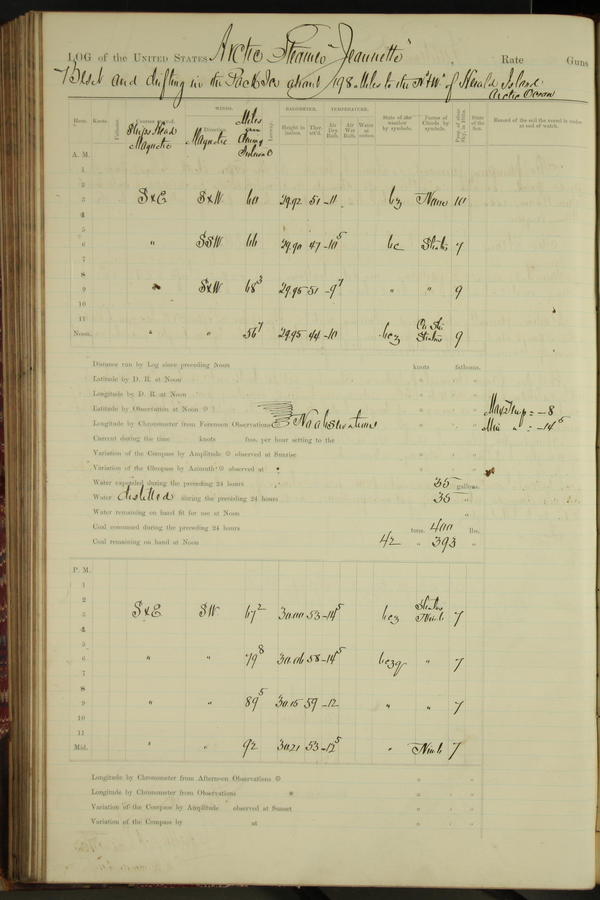 LOG of the UNITED STATES Arctic Steamer "Jeannette" Rate Guns
Beset and drifting in the Pack Ice about 198 Miles to the N & W of Herald Island
Arctic Ocean
WINDS. BAROMETER. TEMPERATURE.
Hour. Knots. Fathoms. Courses steered. Ships Head Magnetic Direction. Magnetic Miles Leeway. Height in inches. Ther. att'd. Air Dry Bulb. Air Wet Bulb. Water at surface. State of the weather by symbols. Forms of Clouds by symbols. Prop. of clear Sky, in 10ths. State of the Sea. Record of the sail the vessel is under at end of watch.
A. M.
1
2
3 S & E S & W 60 29.92 51 -11 bz None 10
4
5
6 " SSW 66 29.90 47 -10⁵ bc Stratus 7
7
8
9 " S & W 68³ 29.95 51 -9⁷ " " 9
10
11
Noon. " " 56⁷ 29.95 44 -10 bcz Ci. St. Stratus 9
Distance run by Log since preceding Noon knots fathoms.
Latitude by D. R. at Noon ° ' "
Longitude by D. R. at Noon ° ' "
Latitude by Observation at Noon
Longitude by Chronometer from Forenoon Observations No observations
Max Temp = -8
Min " = -14⁶
Current during the time knots fms. per hour setting to the
Variation of the Compass by Amplitude observed at Sunrise
Variation of the Compass by Azimuth observed at
Water expended during the preceding 24 hours 35 gallons.
Water distilled during the preceding 24 hours 35 "
Water remaining on hand fit for use at Noon "
Coal consumed during the preceding 24 hours tons. 400 lbs.
Coal remaining on hand at Noon 42 " 393 "
P. M.
1
2
3 S & E SW 67² 30.00 53 -14⁵ bcz Stratus Nimb. 7
4
5
6 " " 79⁸ 30.06 58 -14⁵ bczq " 7
7
8
9 " " 89⁵ 30.15 59 -12 " " 7
10
11
Mid. " " 92 30.21 53 -12⁵ " Nimb. 7
Longitude by Chronometer from Afternoon Observations
Longitude by Chronometer from Observations
Variation of the Compass by Amplitude observed at Sunset
Variation of the Compass by at